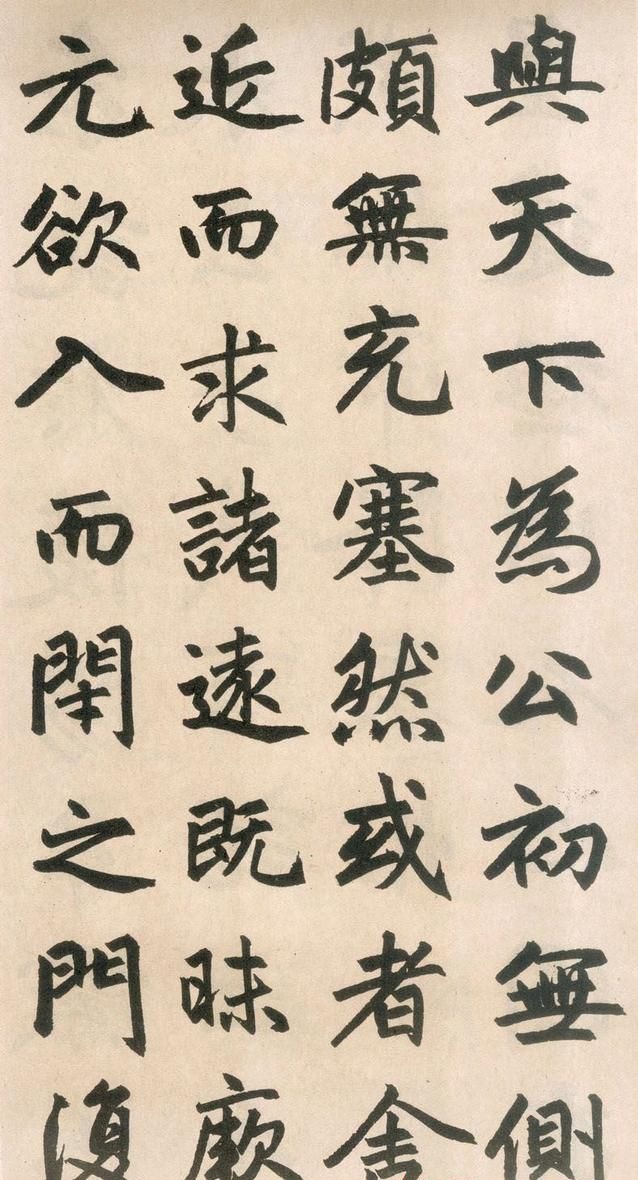 與天下為公初無側
頗無充塞然或者舍
近而求諸遠既昧厥
元欲入而閉之門復